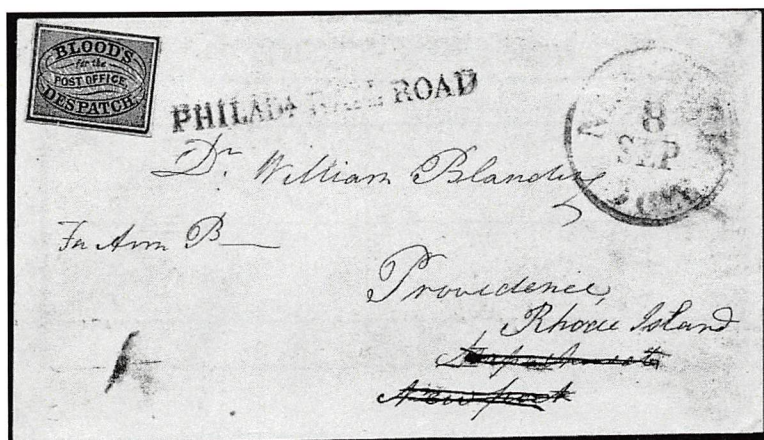 BLOOD'S
for the
POST OFFICE
DESPATCH
PHILADA RAIL ROAD
8
SEP
Dr. William Blanding
For Ann B
Providence,
Rhode Island
Massachusetts
Newport